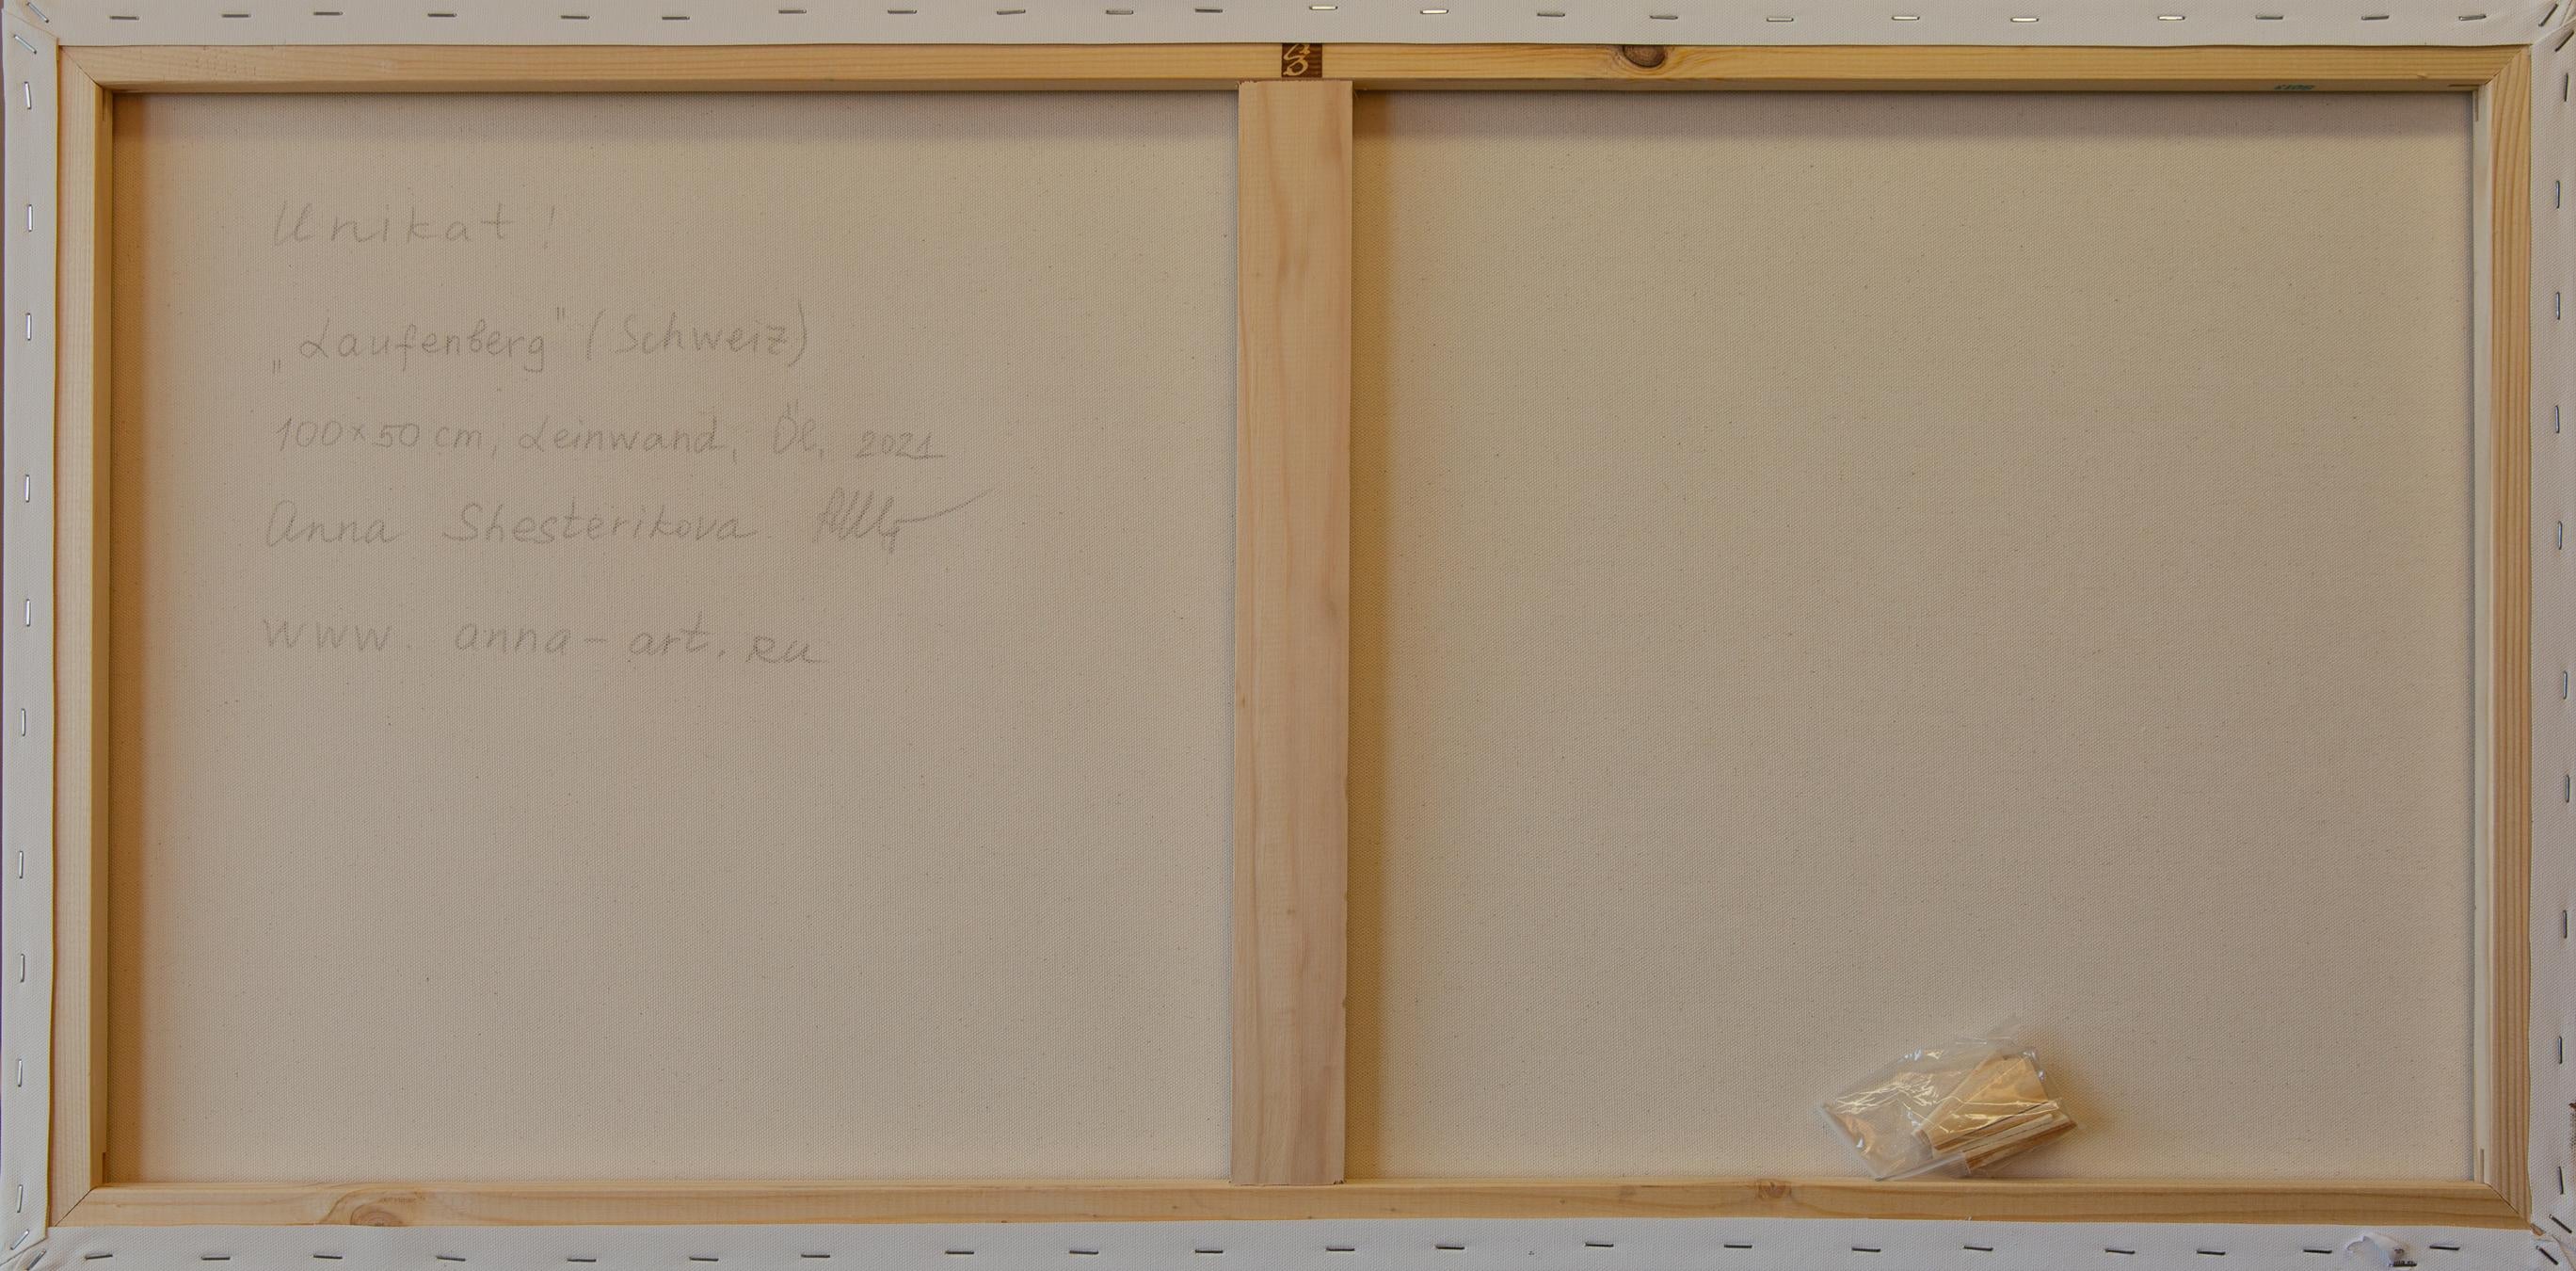 Unikat!
„Laufenberg" (Schweiz)
100×50 cm, Leinwand, Öl, 2021
Anna Shesterikova
www. anna-art.ru